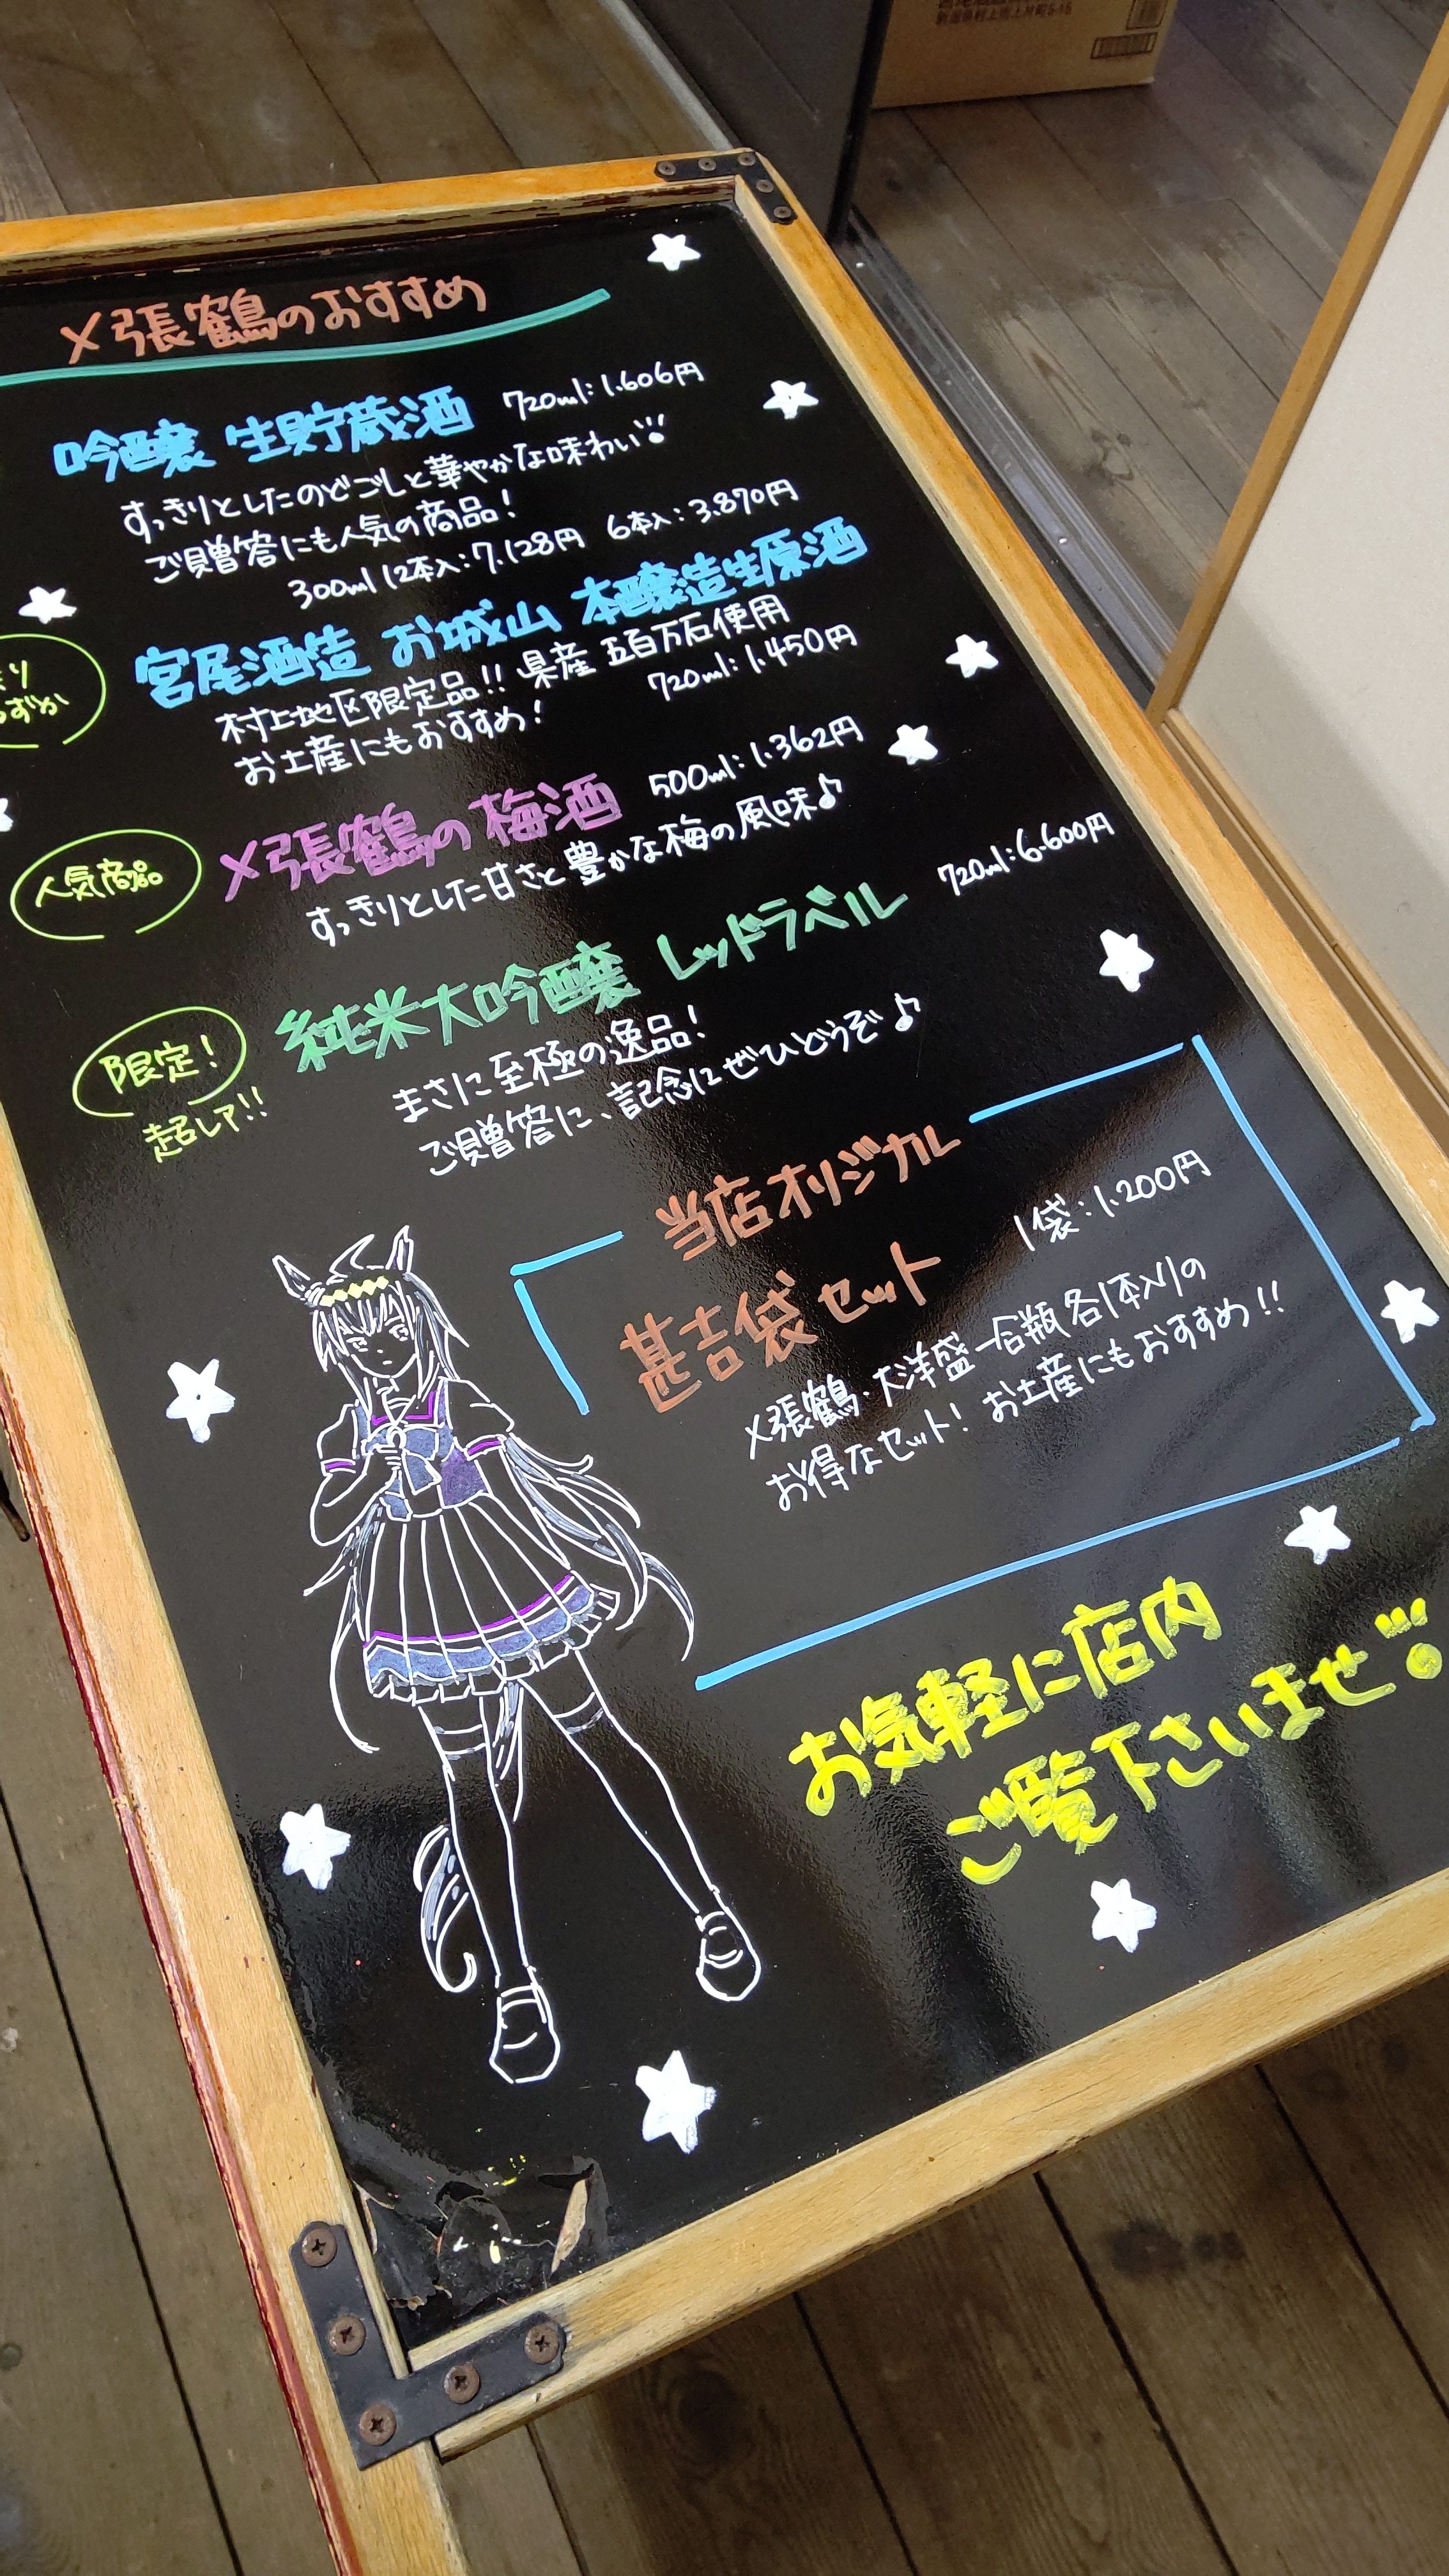 新潟県村上市上片町5-15
〆張鶴のおすすめ
吟醸 生貯蔵酒 720ml:1.606円
すっきりとしたのどごしと華やかな味わい
ご贈答にも人気の商品!
300ml 12本入:7.128円 6本入:3.870円
宮尾酒造 お城山 本醸造生原酒
村上地区限定品!! 県産 五百万石使用
お土産にもおすすめ! 720ml:1.450円
人気商品
〆張鶴の梅酒 500ml:1.362円
すっきりとした甘さと豊かな梅の風味♪
限定!
超レア!!
純米大吟醸 レッドラベル 720ml:6.600円
まさに至極の逸品!
ご贈答に、記念にぜひどうぞ♪
当店オリジナル
甚吉袋セット 1袋:1.200円
〆張鶴・大洋盛 一合瓶各1本入りの
お得なセット! お土産にもおすすめ!!
お気軽に店内
ご覧下さいませ